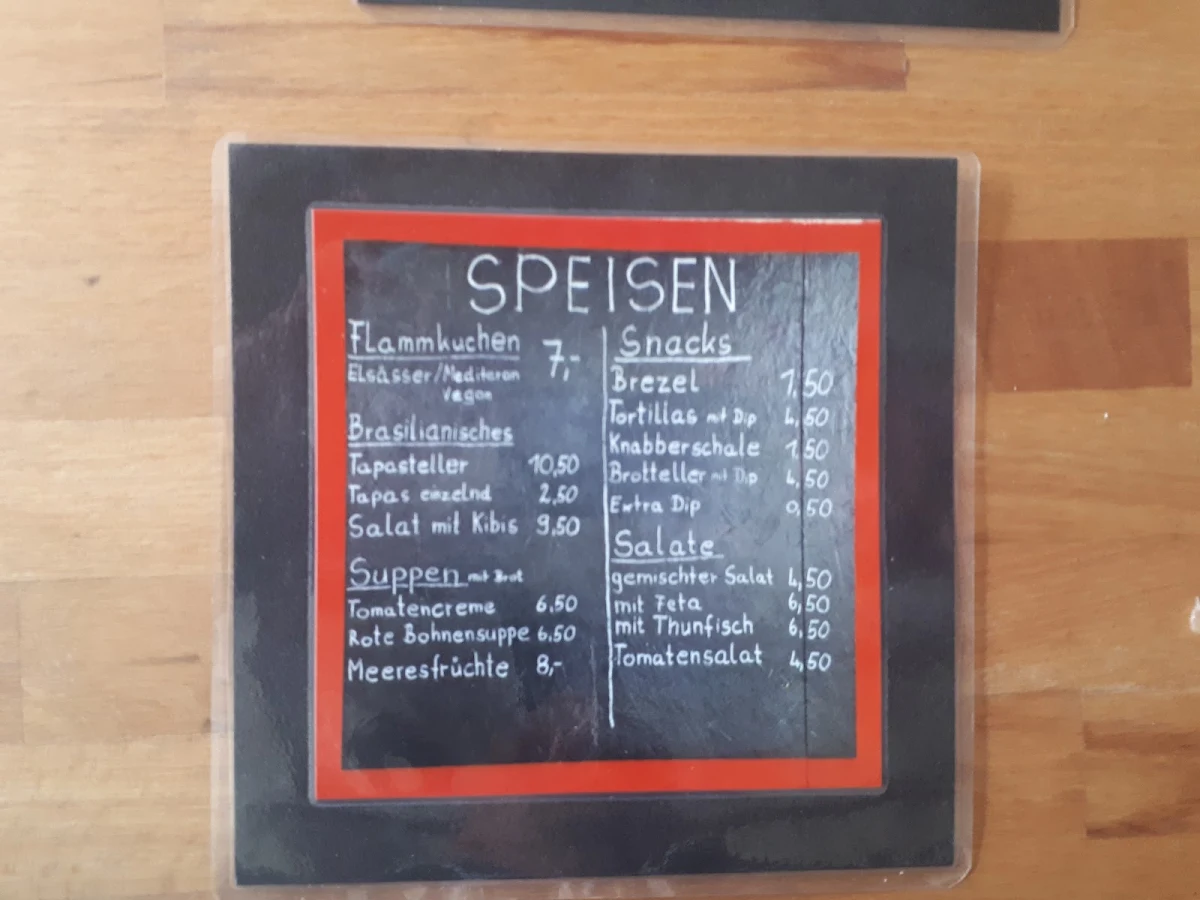 SPEISEN
Flammkuchen 7,-
Elsässer/Mediteran
Vegan
Brasilianisches
Tapasteller 10,50
Tapas einzelnd 2,50
Salat mit Kibis 9,50
Suppen mit Brot
Tomatencreme 6.50
Rote Bohnensuppe 6.50
Meeresfrüchte 8,-
Snacks
Brezel 1,50
Tortillas mit Dip 4,50
Knabberschale 1,50
Brotteller mit Dip 4,50
Extra Dip 0,50
Salate
gemischter Salat 4,50
mit Feta 6,50
mit Thunfisch 6,50
Tomatensalat 4,50